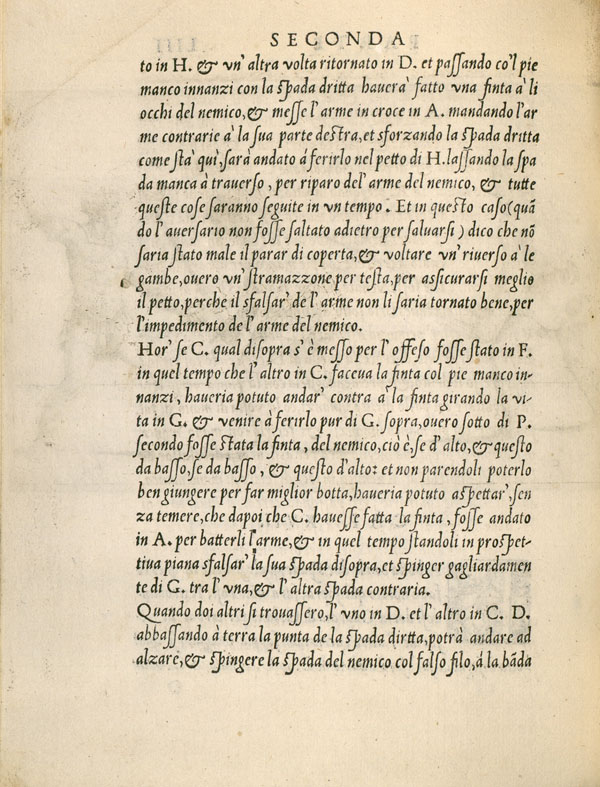 SECONDA
to in H. & vn' altra volta ritornato in D. et passando co'l pie
manco innanzi con la spada dritta hauera' fatto vna finta à li
occhi del nemico, & messe l' arme in croce in A. mandando l'ar
me contrarie a' la sua parte destra, et sforzando la spada dritta
come sta' qui, sarà andato á ferirlo nel petto di H. lassando la spa
da manca à trauerso, per riparo del' arme del nemico, & tutte
queste cose saranno seguite in vn tempo. Et in questo caso (quã
do l' auersario non fosse saltato adietro per saluarsi) dico che nõ
saria stato male il parar di coperta, & voltare vn' riuerso à le
gambe, ouero vn' stramazzone per testa, per assicurarsi meglio
il petto, perche il sfalsar' de l' arme non li saria tornato bene, per
l'impedimento de l' arme del nemico.
Hor' se C. qual disopra s' è messo per l' offeso fosse stato in F.
in quel tempo che l' altro in C. faceua la finta col pie manco in-
nanzi, haueria potuto andar' contra à la finta girando la vi-
ta in G. & venire à ferirlo pur di G. sopra, ouero sotto di P.
secondo fosse stata la finta, del nemico, ciò è, se d' alto, & questo
da basso, se da basso, & questo d'alto: et non parendoli poterlo
ben giungere per far miglior botta, haueria potuto aspettar', sen
za temere, che dapoi che C. hauesse fatta la finta, fosse andato
in A. per batterli l'arme, & in quel tempo standoli in prospet-
tiua piana sfalsar' la sua spada disopra, et spinger gagliardamen
te di G. tra l' vna, & l' altra spada contraria.
Quando doi altri si trouassero, l' vno in D. et l' altro in C. D.
abbassando à terra la punta de la spada dirtta, potrà andare ad
alzare, & spingere la spada del nemico col falso filo, á la bãda